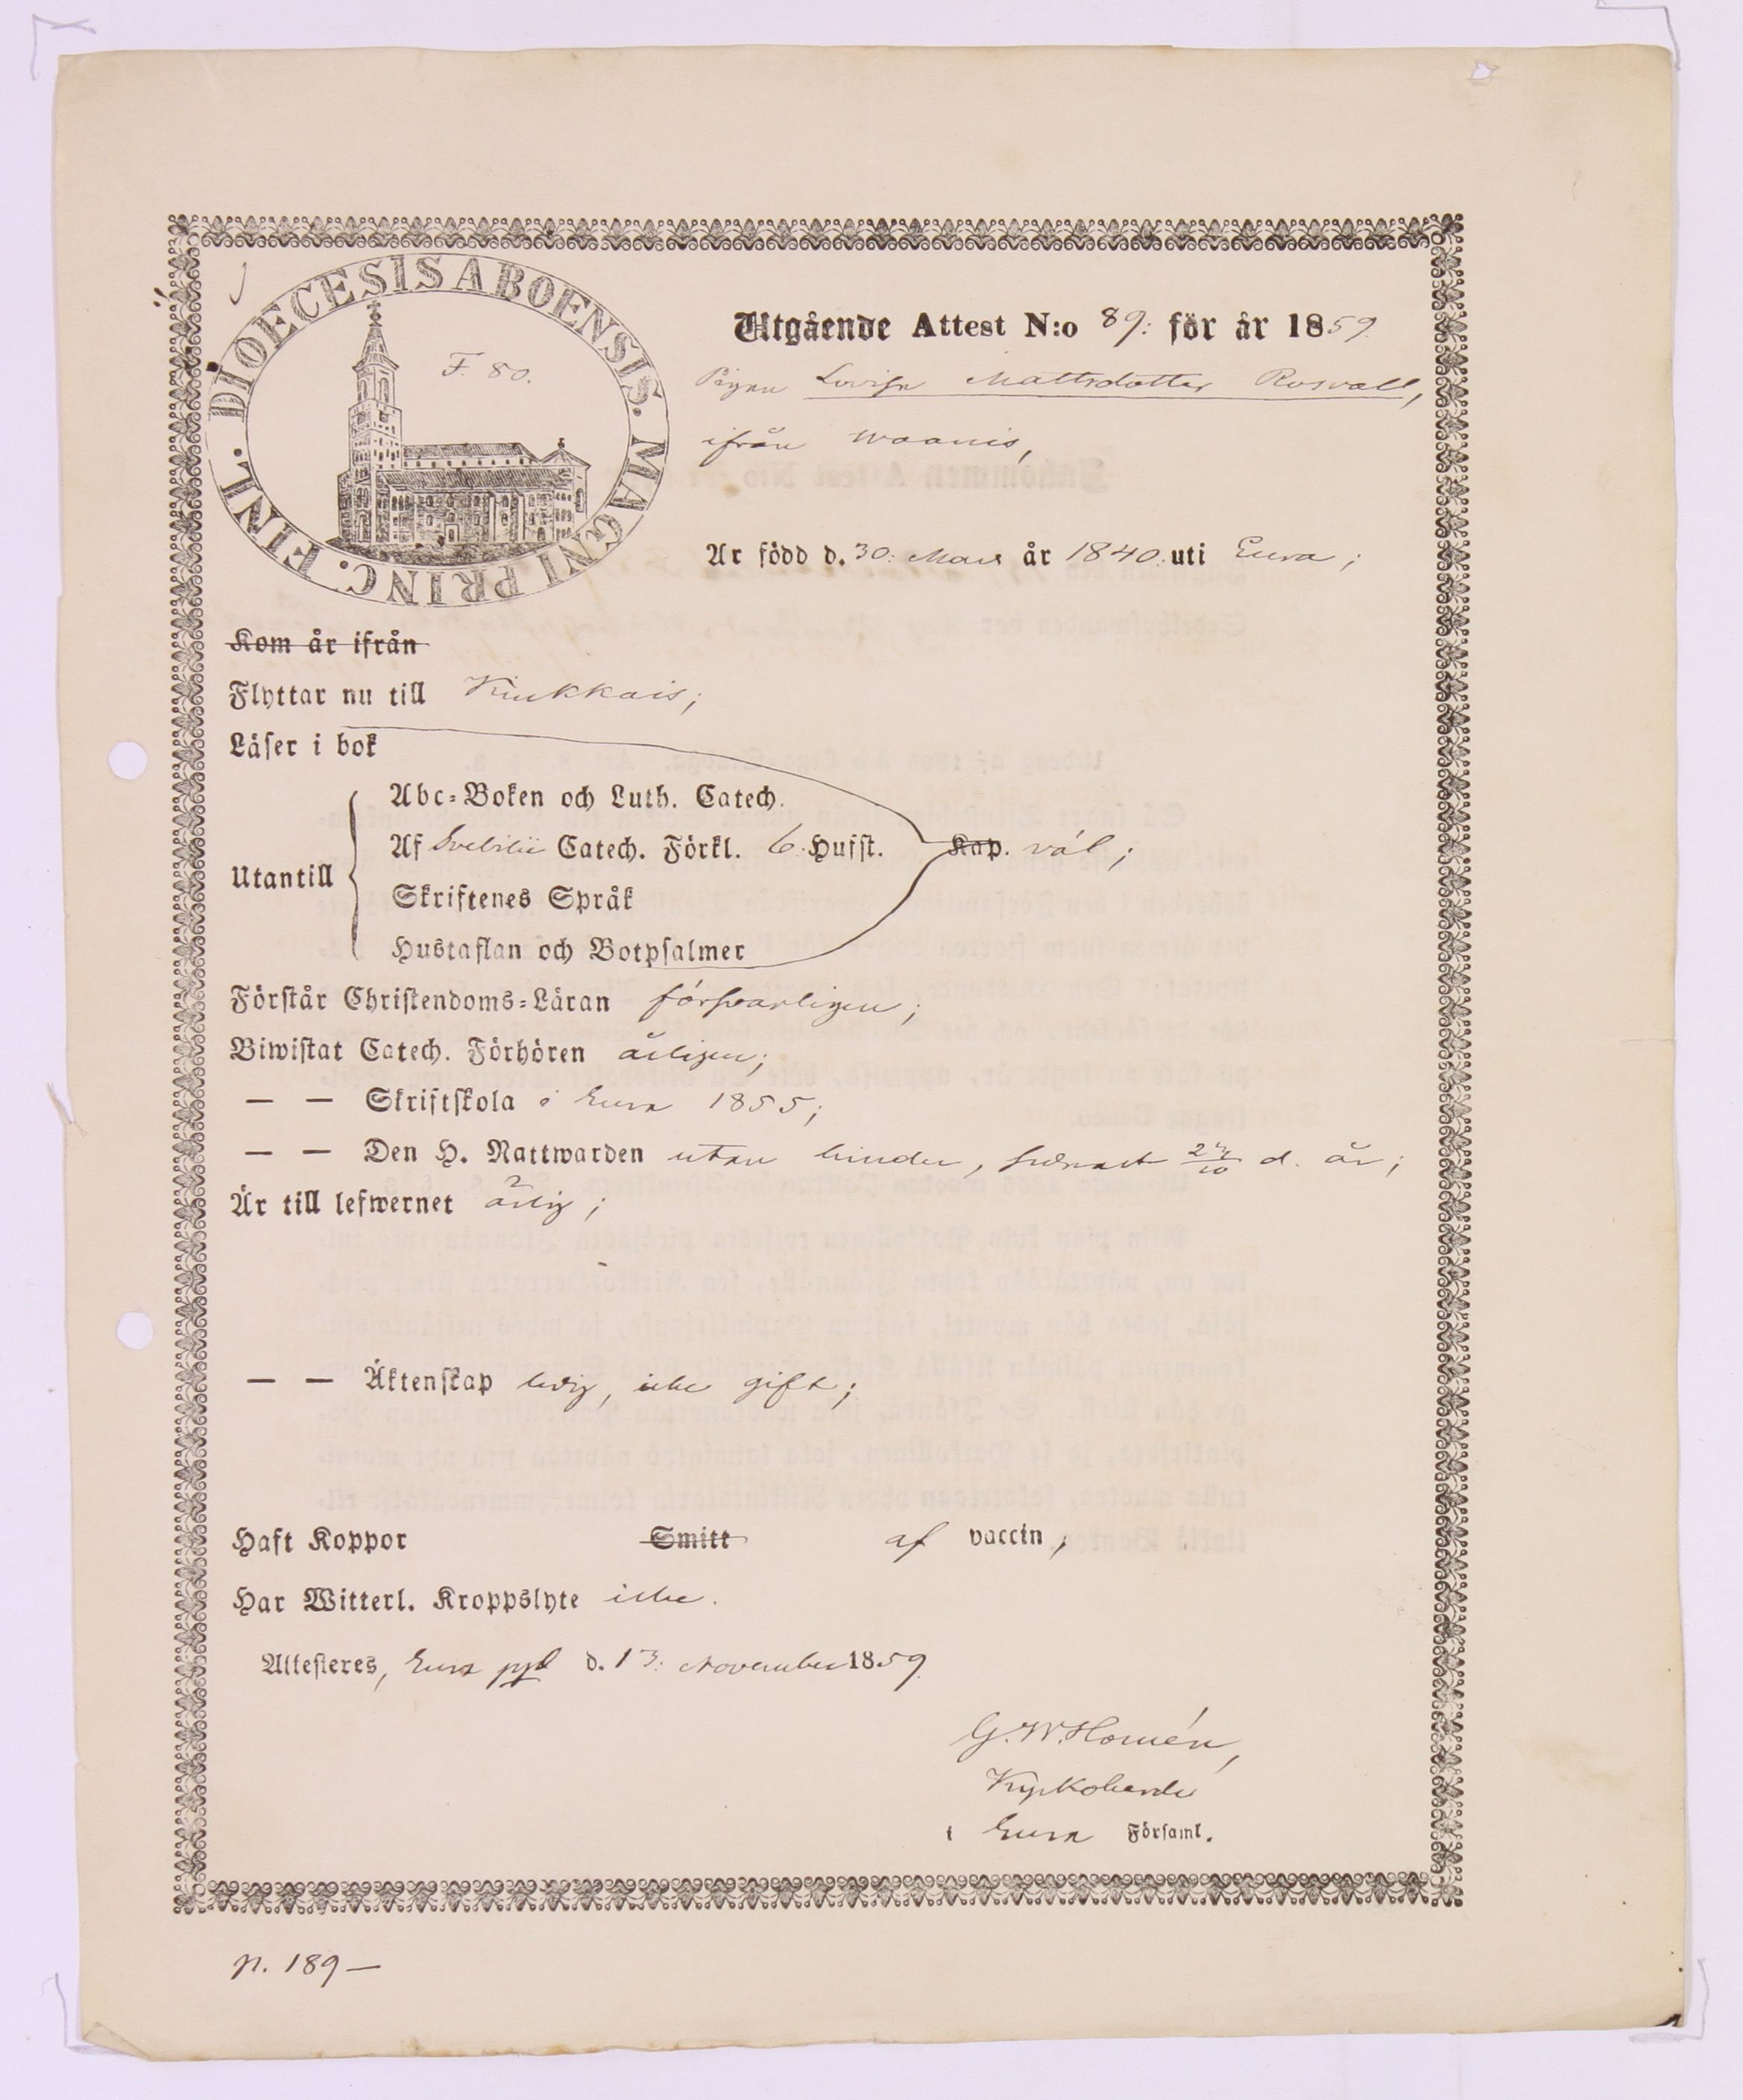 DIOECESIS ABOENSIS. MAGNI PRINC. FINL.
F. 80.
Utgående Attest N:o 89: för år 1859.
Pigan Lovisa Mattsdotter Rosvall,
ifrån Waanis,
Är född d. 30: Mars år 1840. uti Eura;
Kom år ifrån
Flyttar nu till Kiukkais;
Läser i bok
Abc-Boken och Luth. Catech.
Utantill Af Svebilii Catech. Förkl. 6. Hufst. Kap. väl;
Skriftenes Språk
Hustaflan och Botpsalmer
Förstår Christendoms-Läran försvarligen;
Biwistat Catech. Förhören årligen;
— — Skriftskola i Eura 1855;
— — Den H. Nattwarden utan hinder, senast 24/10 d. år;
Är till lefwernet ärlig;
— — Äktenskap ledig, icke gift;
Haft Koppor Smitt af vaccin;
Har Witterl. Kroppslyte icke.
Attesteres, Eura pgd d. 13: November 1859.
G. W. Homén,
Kyrkoherde
i Eura Församl.
n. 189—